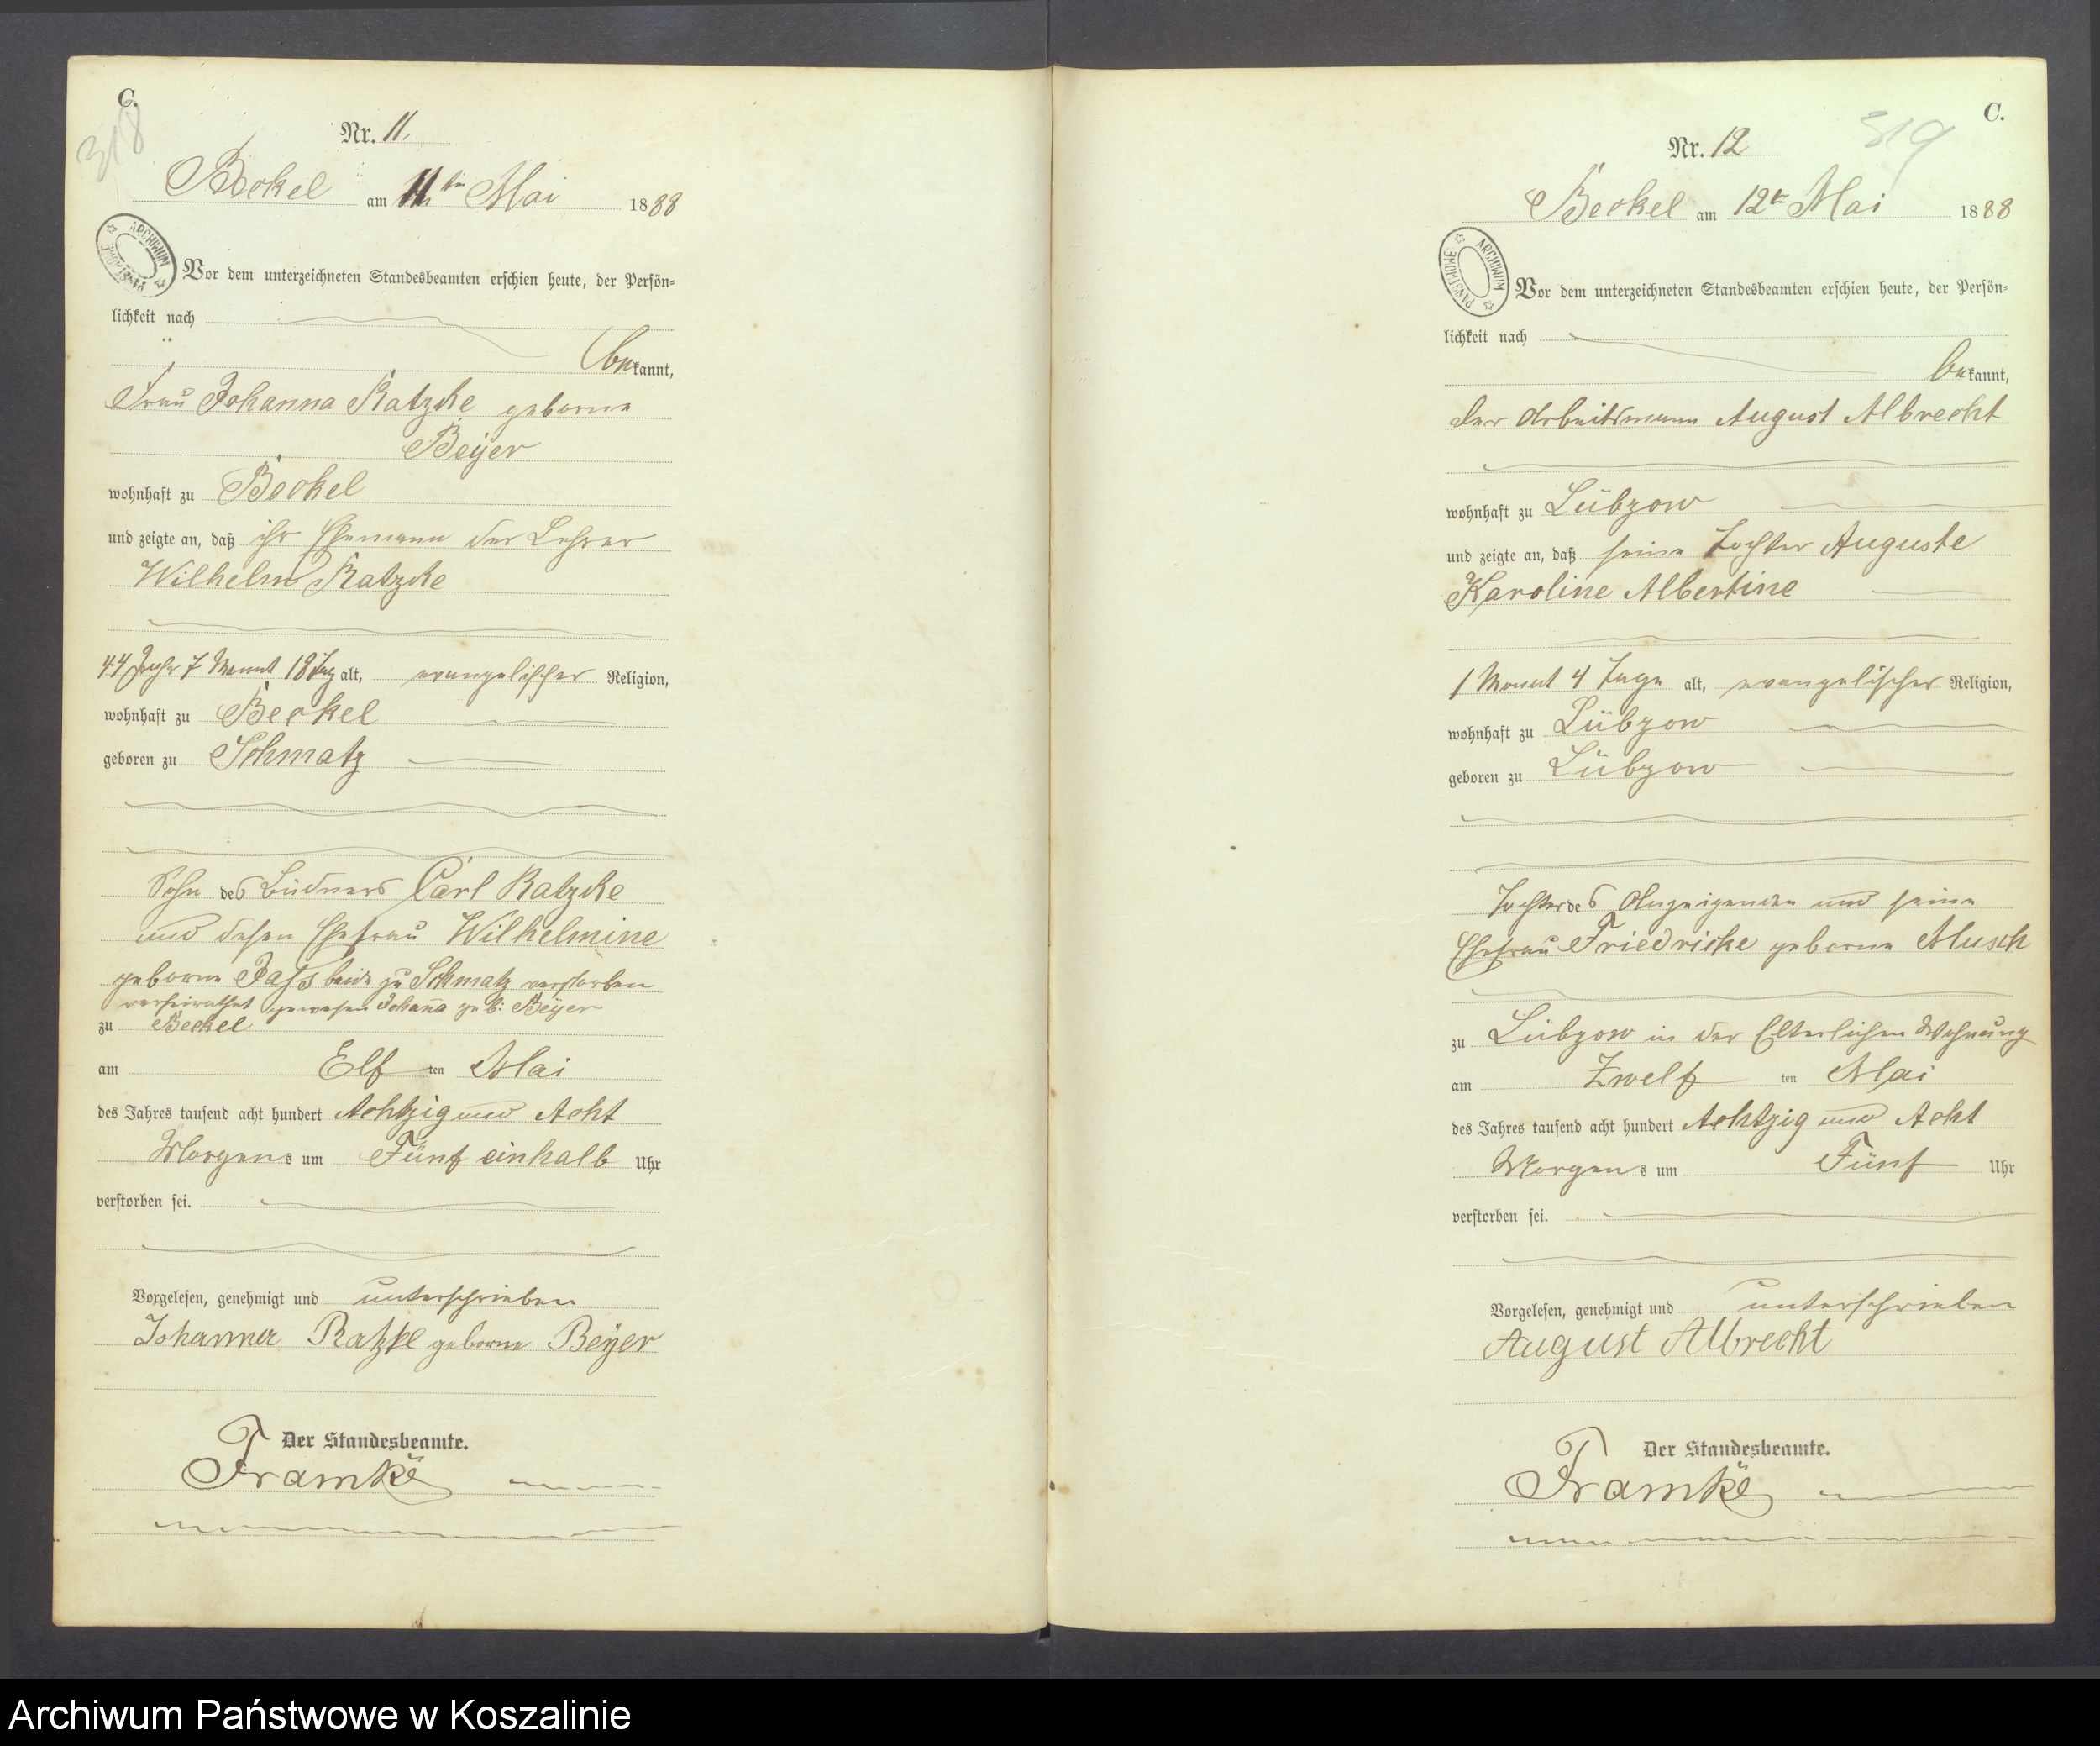 C.
318
Nr. 11.
Beckel am 11ten Mai 1888
ARCHIWUM PAŃSTWOWE
Vor dem unterzeichneten Standesbeamten erschien heute, der Persön-
lichkeit nach
bekannt,
Frau Johanna Ratzcke geborne
Beÿer
wohnhaft zu Beckel
und zeigte an, daß ihr Ehemann der Lehrer
Wilhelm Ratzcke
44 Jahr 7 Monat 18 Tag alt, evangelischer Religion,
wohnhaft zu Beckel
geboren zu Schmatz
Sohn des Büdners Carl Ratzcke
und desen Ehefrau Wilhelmine
geborne beide zu Schmatz verstorben
verheirathet gewesen Johana geb: Beÿer
zu Beckel
am Elf ten Mai
des Jahres tausend acht hundert Achtzig und Acht
Morgens um Fünf einhalb Uhr
verstorben sei.
Vorgelesen, genehmigt und unterschrieben
Johanna Ratzke geborne Beÿer
Der Standesbeamte.
Framke
C.
319
Nr. 12
Beckel am 12te Mai 1888
ARCHIWUM PAŃSTWOWE
Vor dem unterzeichneten Standesbeamten erschien heute, der Persön-
lichkeit nach
bekannt,
der Arbeitsmann August Albrecht
wohnhaft zu Lübzow
und zeigte an, daß seine Tochter Auguste
Karoline Albertine
1 Monat 4 Tage alt, evangelischer Religion,
wohnhaft zu Lübzow
geboren zu Lübzow
Tochter des Anzeigenden und seine
Ehefrau Friedricke geborne
zu Lübzow in der Elterlichen Wohnung
am Zwelf ten Mai
des Jahres tausend acht hundert Achtzig und Acht
Morgens um Fünf Uhr
verstorben sei.
Vorgelesen, genehmigt und unterschrieben
August Albrecht
Der Standesbeamte.
Framke
Archiwum Państwowe w Koszalinie